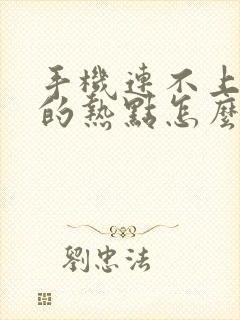 手機連不上
的熱點怎麼
劉忠法